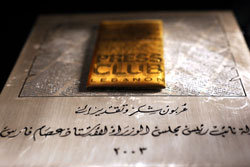 PRESS
CLUB
LEBANON
عربون شكر وتقدير الى
دولة نائب رئيس مجلس الوزراء الاستاذ عصام فارس
٢٠٠٣